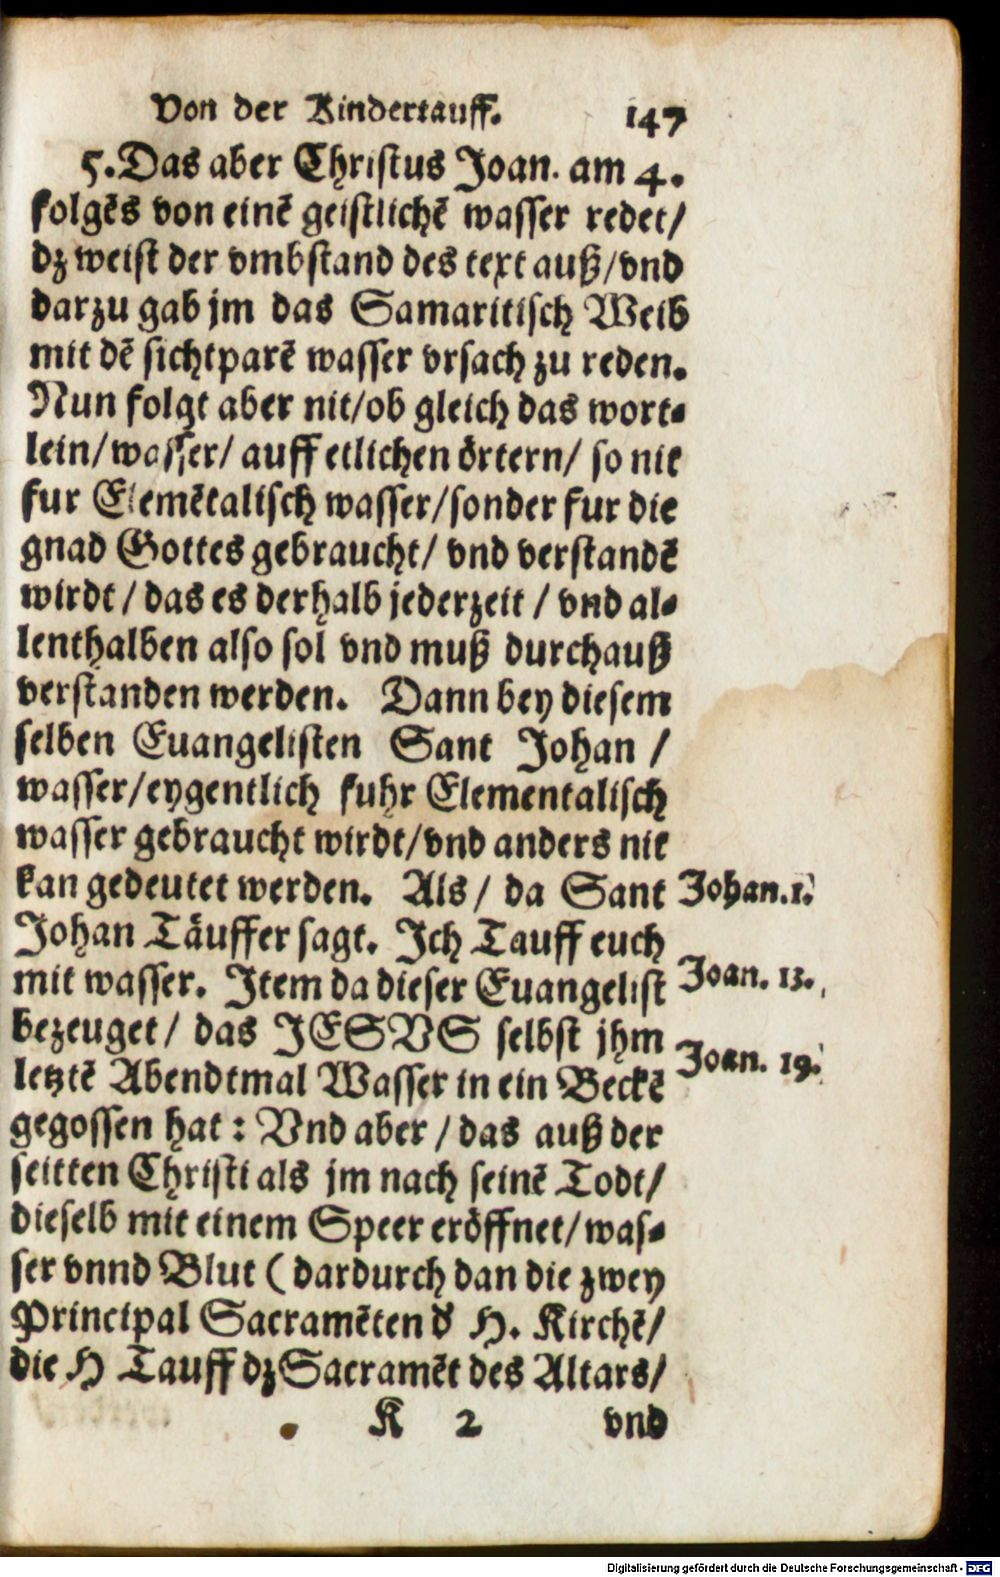 Von der Kindertauff. 147
5. Das aber Christus Joan. am 4.
folgēs von einē geistlichē wasser redet/
dz weist der vmbstand des text auß/vnd
darzu gab jm das Samaritisch Weib
mit dē sichtparē wasser vrsach zu reden.
Nun folgt aber nit/ob gleich das wort-
lein/wasser/ auff etlichen örtern/ so nit
fur Elemētalisch wasser/sonder fur die
gnad Gottes gebraucht/ vnd verstandē
wirdt / das es derhalb jederzeit / vnd al-
lenthalben also sol vnd muß durchauß
verstanden werden. Dann bey diesem
selben Euangelisten Sant Johan /
wasser/eygentlich fuhr Elementalisch
wasser gebraucht wirdt/vnd anders nit
kan gedeutet werden. Als / da Sant
Johan.1.
Johan Täuffer sagt. Ich Tauff euch
mit wasser. Item da dieser Euangelist
Joan. 13.
bezeuget/ das JESVS selbst jhm
Joan. 19.
letztē Abendtmal Wasser in ein Beckē
gegossen hat : Vnd aber / das auß der
seitten Christi als jm nach seinē Todt/
dieselb mit einem Speer eröffnet/was-
ser vnnd Blut ( dardurch dan die zwey
Principal Sacramēten d' H. Kirchē/
die H Tauff dz Sacramēt des Altars/
K 2 vnd
Digitalisierung gefördert durch die Deutsche Forschungsgemeinschaft - DFG